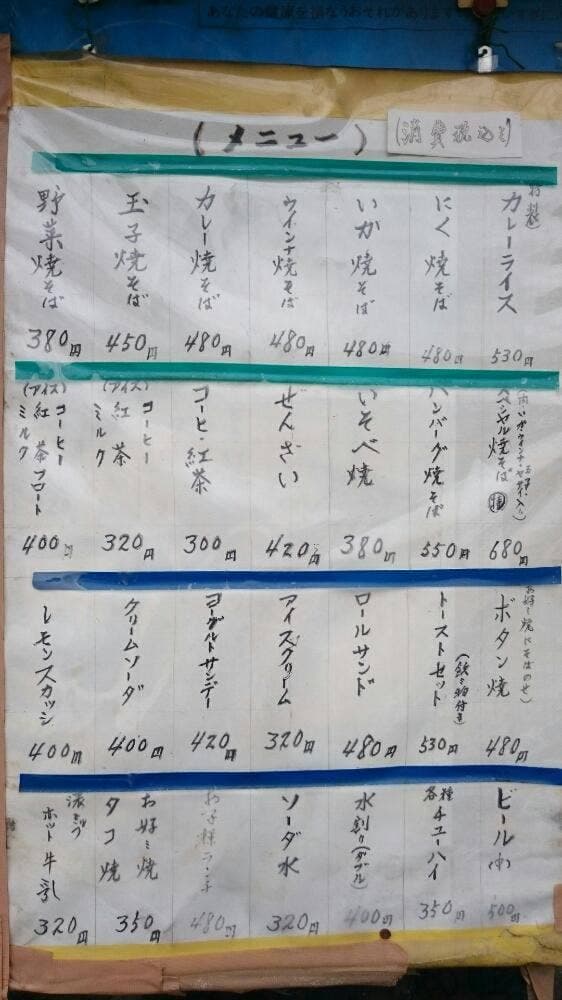 あなたの健康を損なうおそれがあります
(メニュー)
(消費税込み)
特製
カレーライス
530円
にく焼そば
480円
いか焼そば
480円
ウインナ焼そば
480円
カレー焼そば
480円
玉子焼そば
450円
野菜焼そば
380円
スペシャル焼そば 特
680円
ハンバーグ焼そば
550円
いそべ焼
380円
ぜんざい
420円
コーヒ・紅茶
300円
(アイス)
コーヒー
紅茶
ミルク
320円
(アイス)
コーヒー
紅茶フロート
ミルク
400円
お好ミ焼にそばのせ
ボタン焼
480円
トーストセット
(飲ミ物付き)
530円
ロールサンド
480円
アイスクリーム
320円
ヨーグルトサンデー
420円
クリームソーダ
400円
レモンスカッシ
400円
ビール(中)
500円
各種
チューハイ
350円
水割り(ダブル)
400円
ソーダ水
320円
480円
お好ミ焼
タコ焼
350円
ホット牛乳
320円